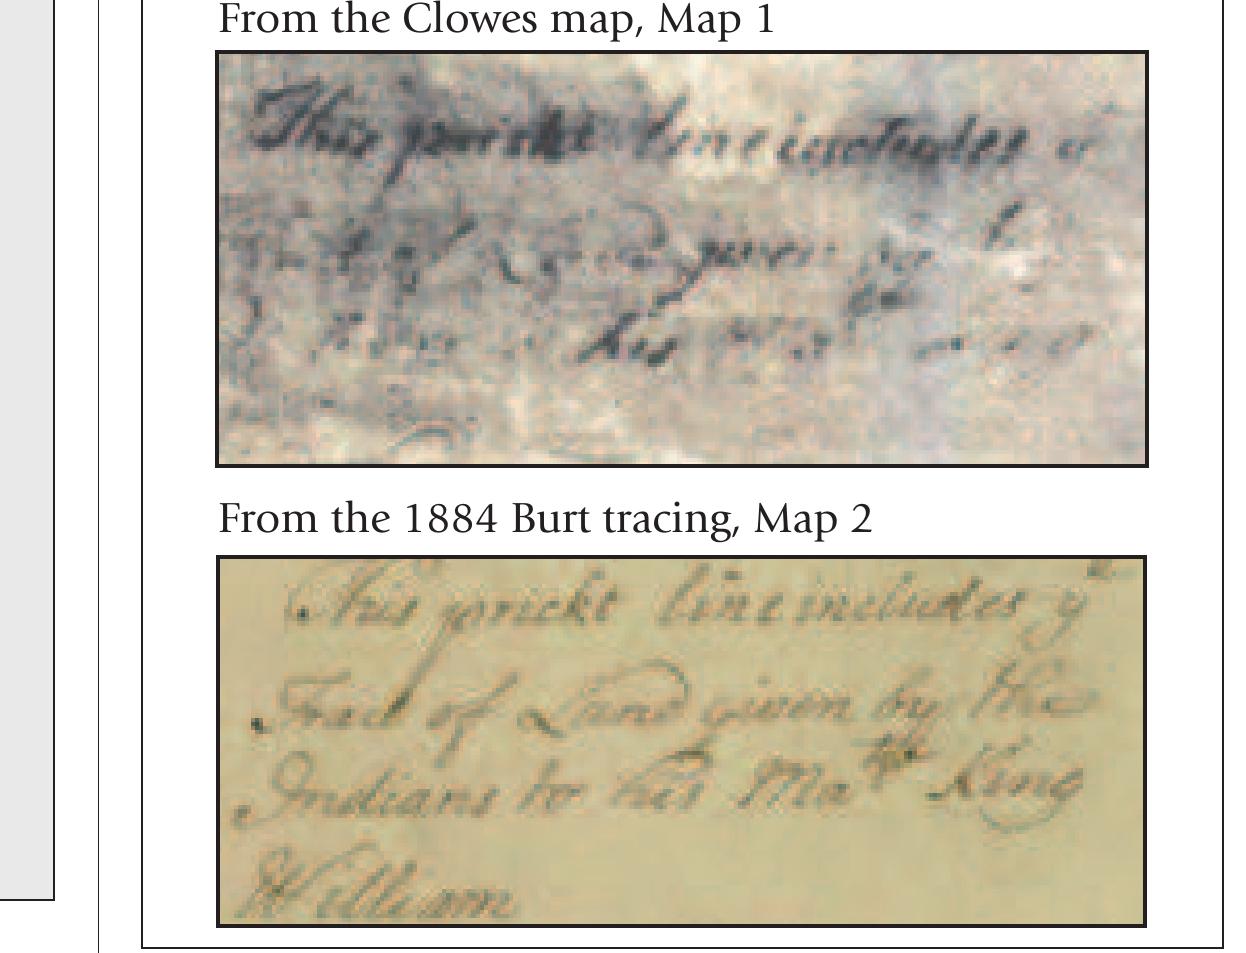 From the Clowes map, Map 1
This prickt line includes
given
his
From the 1884 Burt tracing, Map 2
This prickt line includes yᵉ
Tract of Land given by the
Indians to his Maᵗⁱᵉ King
William